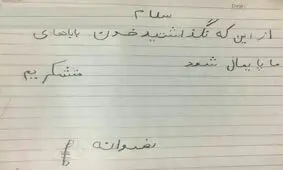 سلام
از این که نگذاشتید خون باباهای
ما پایمال شود متشکریم
رضوانه